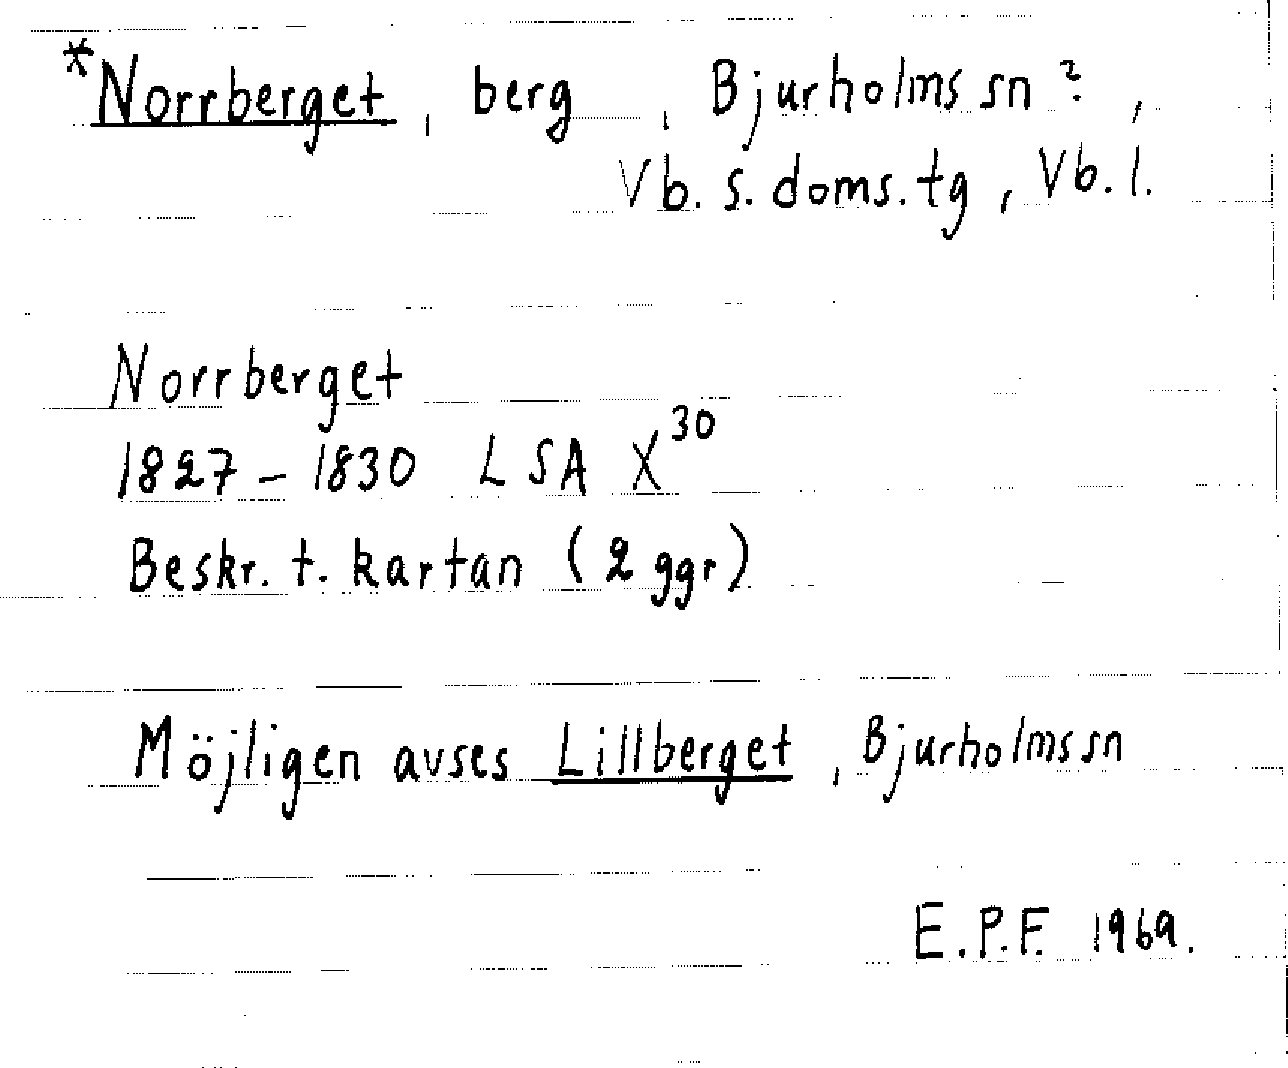 *Norrberget, berg, Bjurholms sn?,
Vb. s. doms. tg, Vb. l.
Norrberget
1827 - 1830 LSA X30
Beskr. t. kartan (2 ggr)
Möjligen avses Lillberget, Bjurholms sn
E.P.F. 1969.